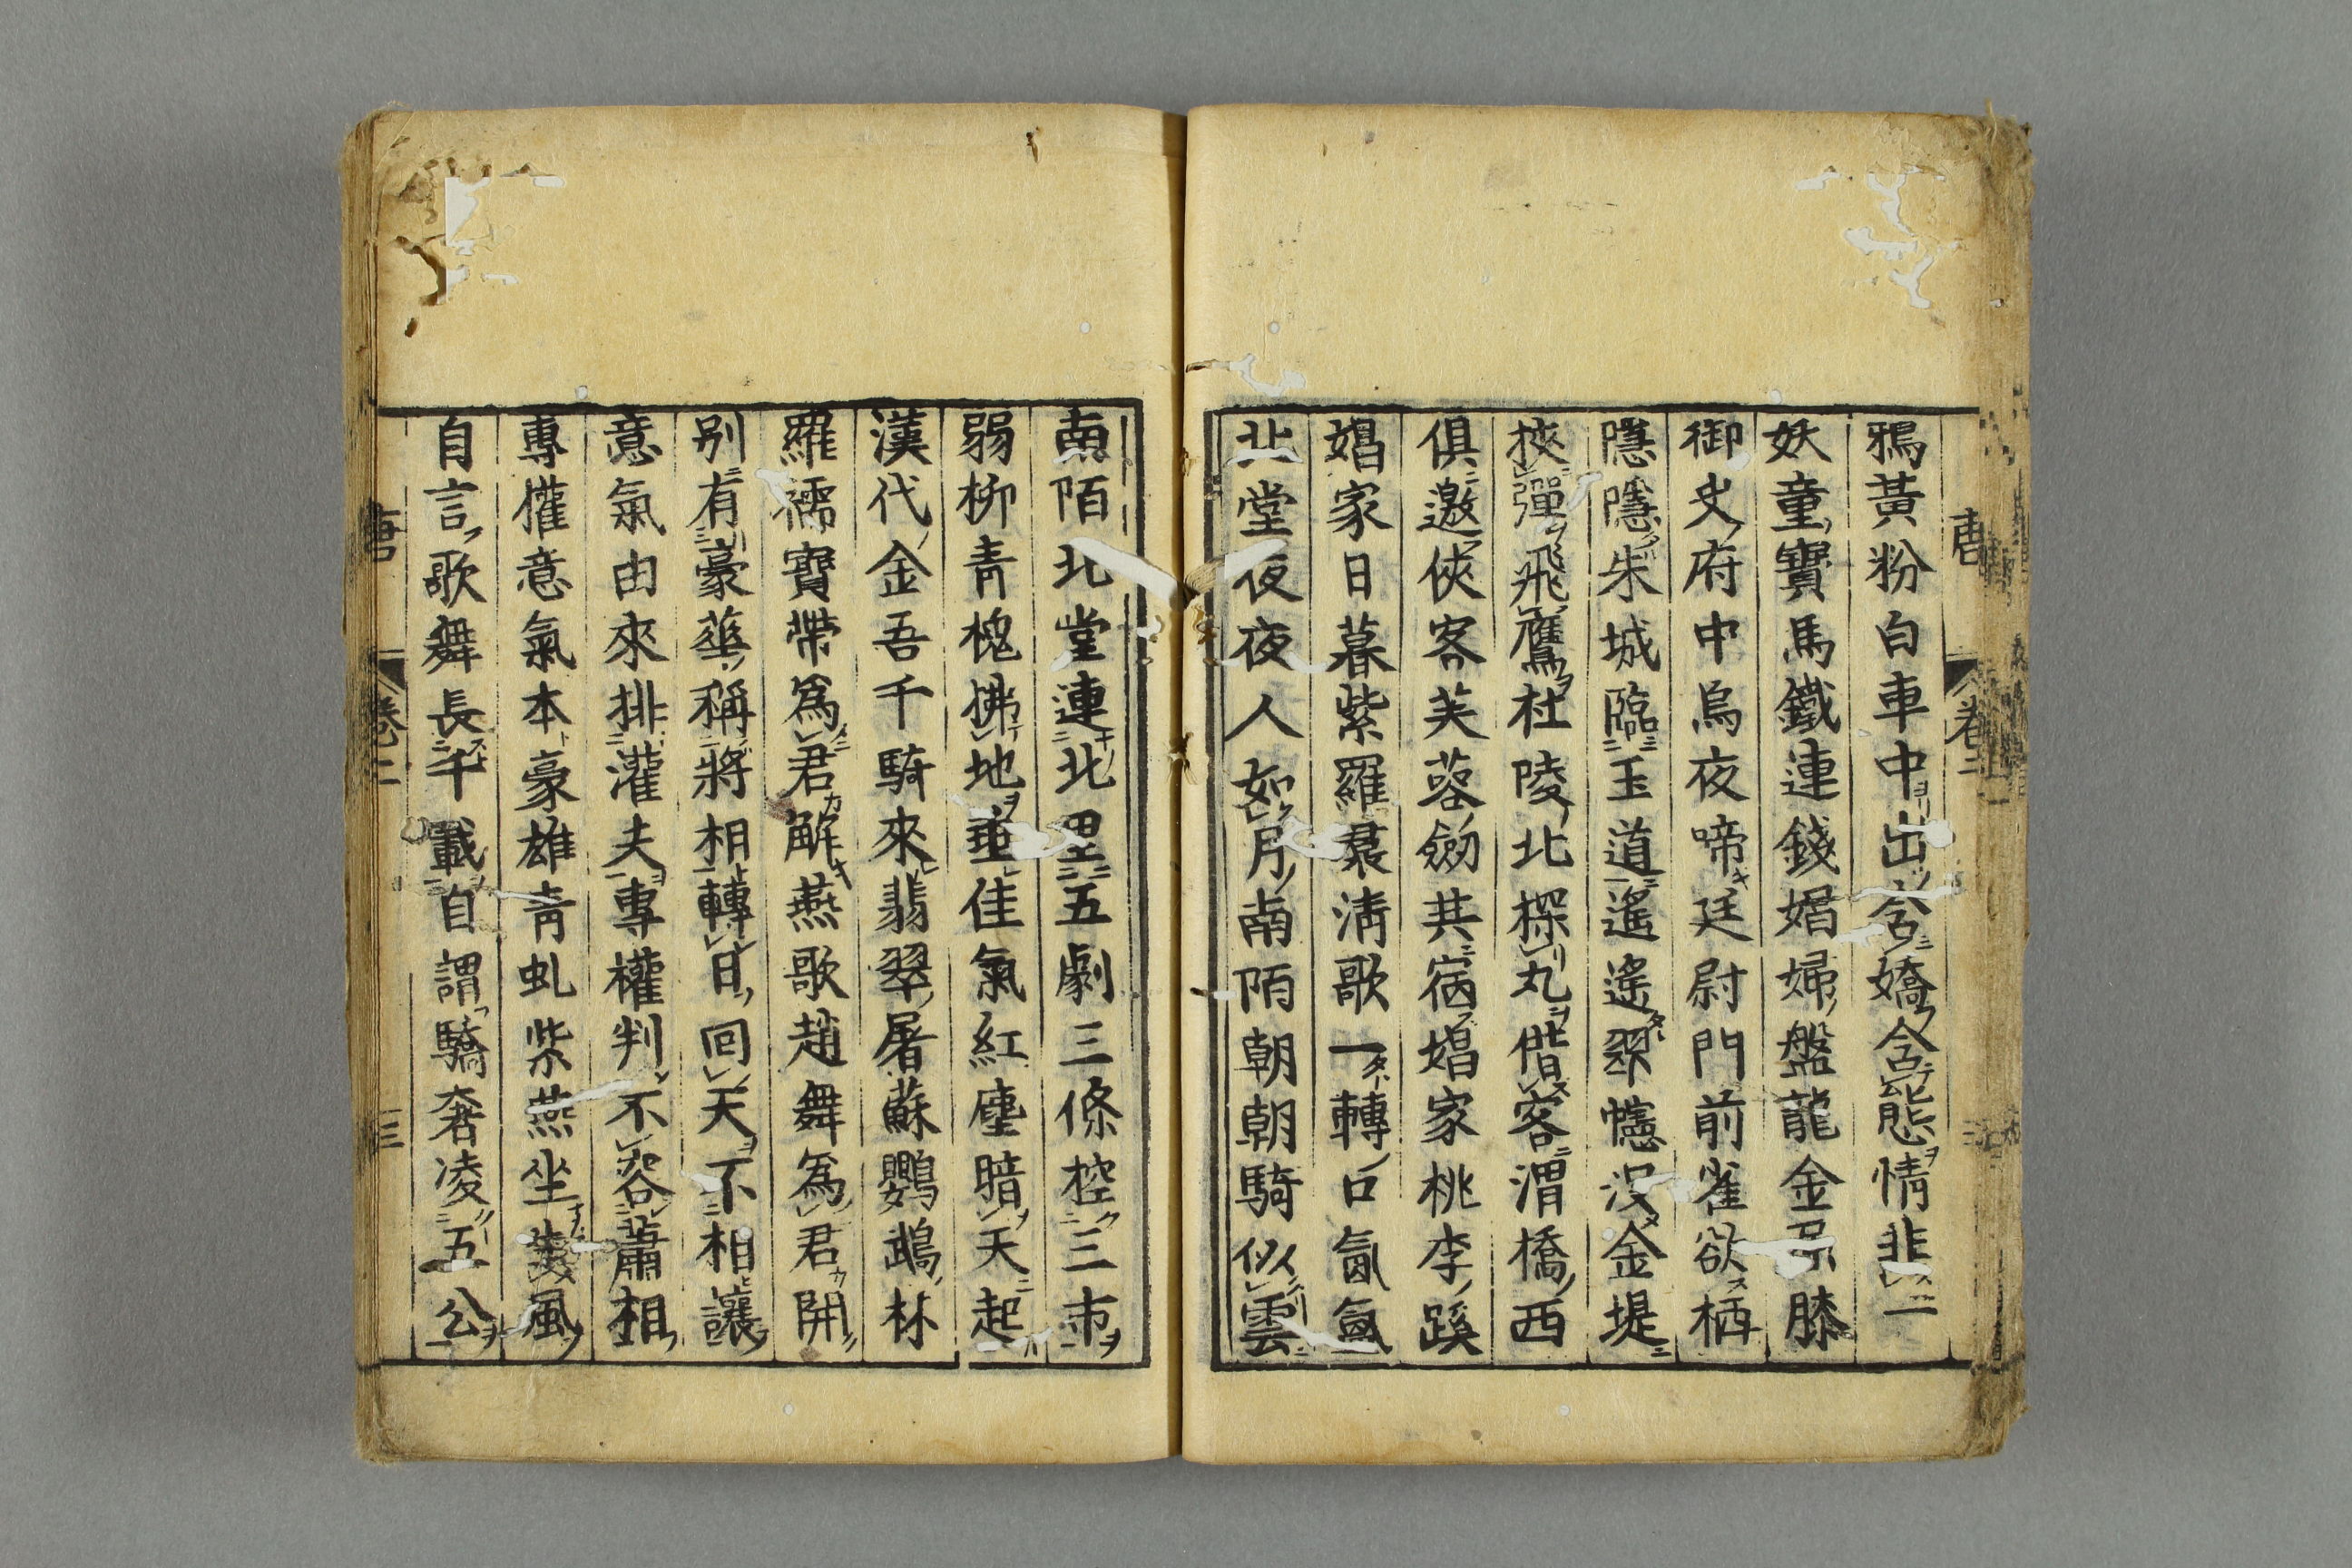 唐 卷二
鴉黃粉白車中出含嬌含態情非一
妖童寶馬鐵連錢娼婦盤龍金屈膝
御史府中烏夜啼廷尉門前雀欲栖
隱隱朱城臨玉道遙遙翠幰沒金堤
挾彈飛鷹杜陵北探丸借客渭橋西
俱邀俠客芙蓉劒共宿娼家桃李蹊
娼家日暮紫羅裠淸歌一轉口氤氳
北堂夜夜人如月南陌朝朝騎似雲
南陌北堂連北里五劇三條控三市
弱柳靑槐拂地垂佳氣紅塵暗天起
漢代金吾千騎來翡翠屠蘇鸚鵡杯
羅襦寶帶爲君解燕歌趙舞爲君開
別有豪華稱將相轉日回天不相讓
意氣由來排灌夫專權判不容蕭相
專權意氣本豪雄靑虬紫燕坐生風
自言歌舞長千載自謂驕奢凌五公
唐 卷二 三